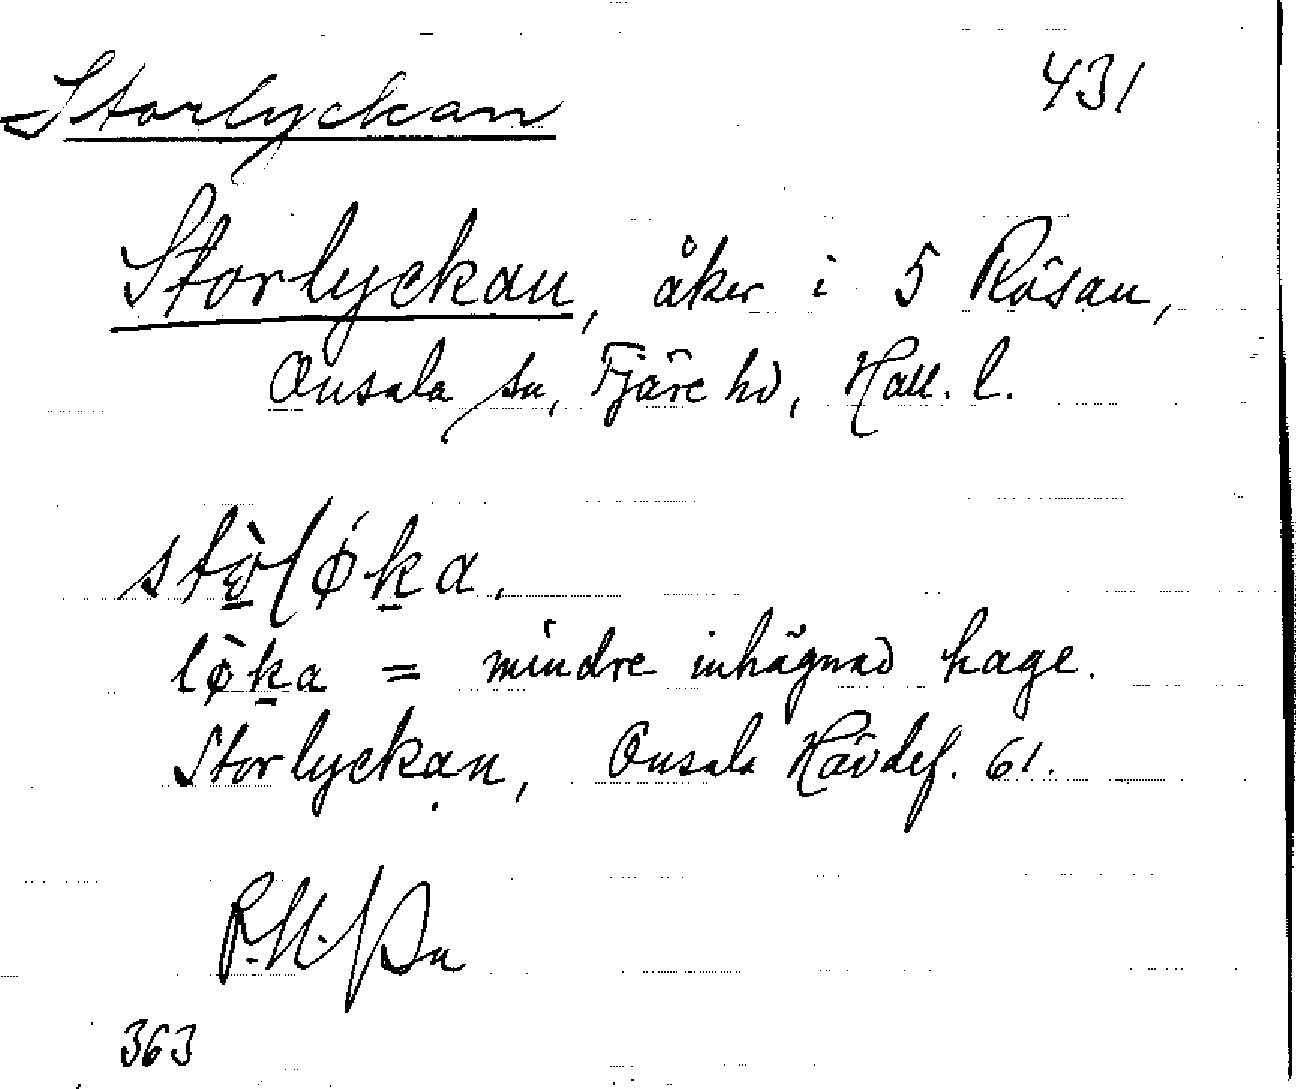 Storlyckan 431
Storlyckan, åker i 5 Rösan,
Onsala sn, Fjäre hd, Hall. l.
løka = mindre inhägnad hage.
Storlyckan, Onsala Hävdef. 61.
363